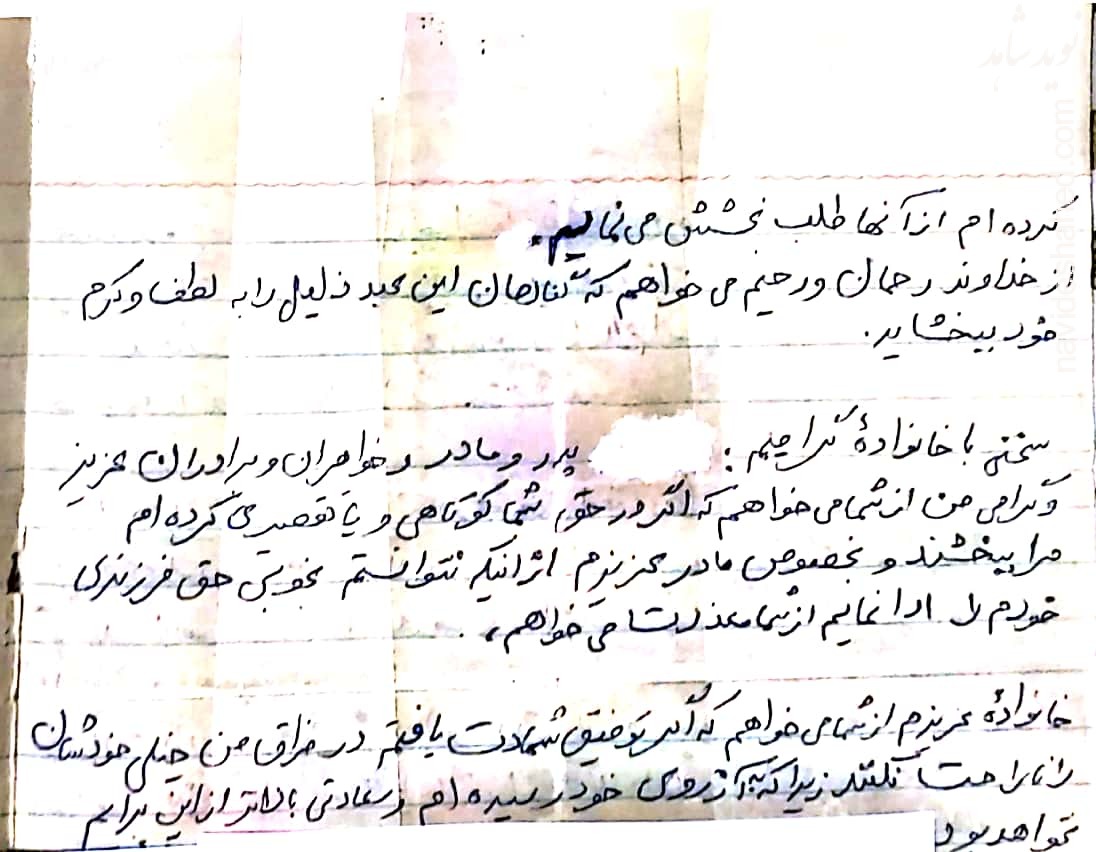 کرده ام از آنها طلب بخشش می نمایم.
از خداوند رحمان و رحیم می خواهم که گناهان این عبد ذلیل را به لطف و کرم
خود ببخشاید.
سخنی با خانوادهٔ گرامیم: پدر و مادر و خواهران و برادران عزیز
و گرامی من از شما می خواهم که اگر در حق شما کوتاهی و یا تقصیری کرده ام
مرا ببخشند و بخصوص مادر عزیزم از اینکه نتوانستم بخوبی حق فرزندی
خودم را ادا نمایم از شما معذرت می خواهم،
خانوادهٔ عزیزم از شما می خواهم که اگر توفیق شهادت یافتم در فراق من خیلی خودشان
را ناراحت نکنند زیرا که به آرزوی خود رسیده ام و سعادتی بالاتر از این برایم
نخواهد بود
نوید شاهد
navideshahed.com